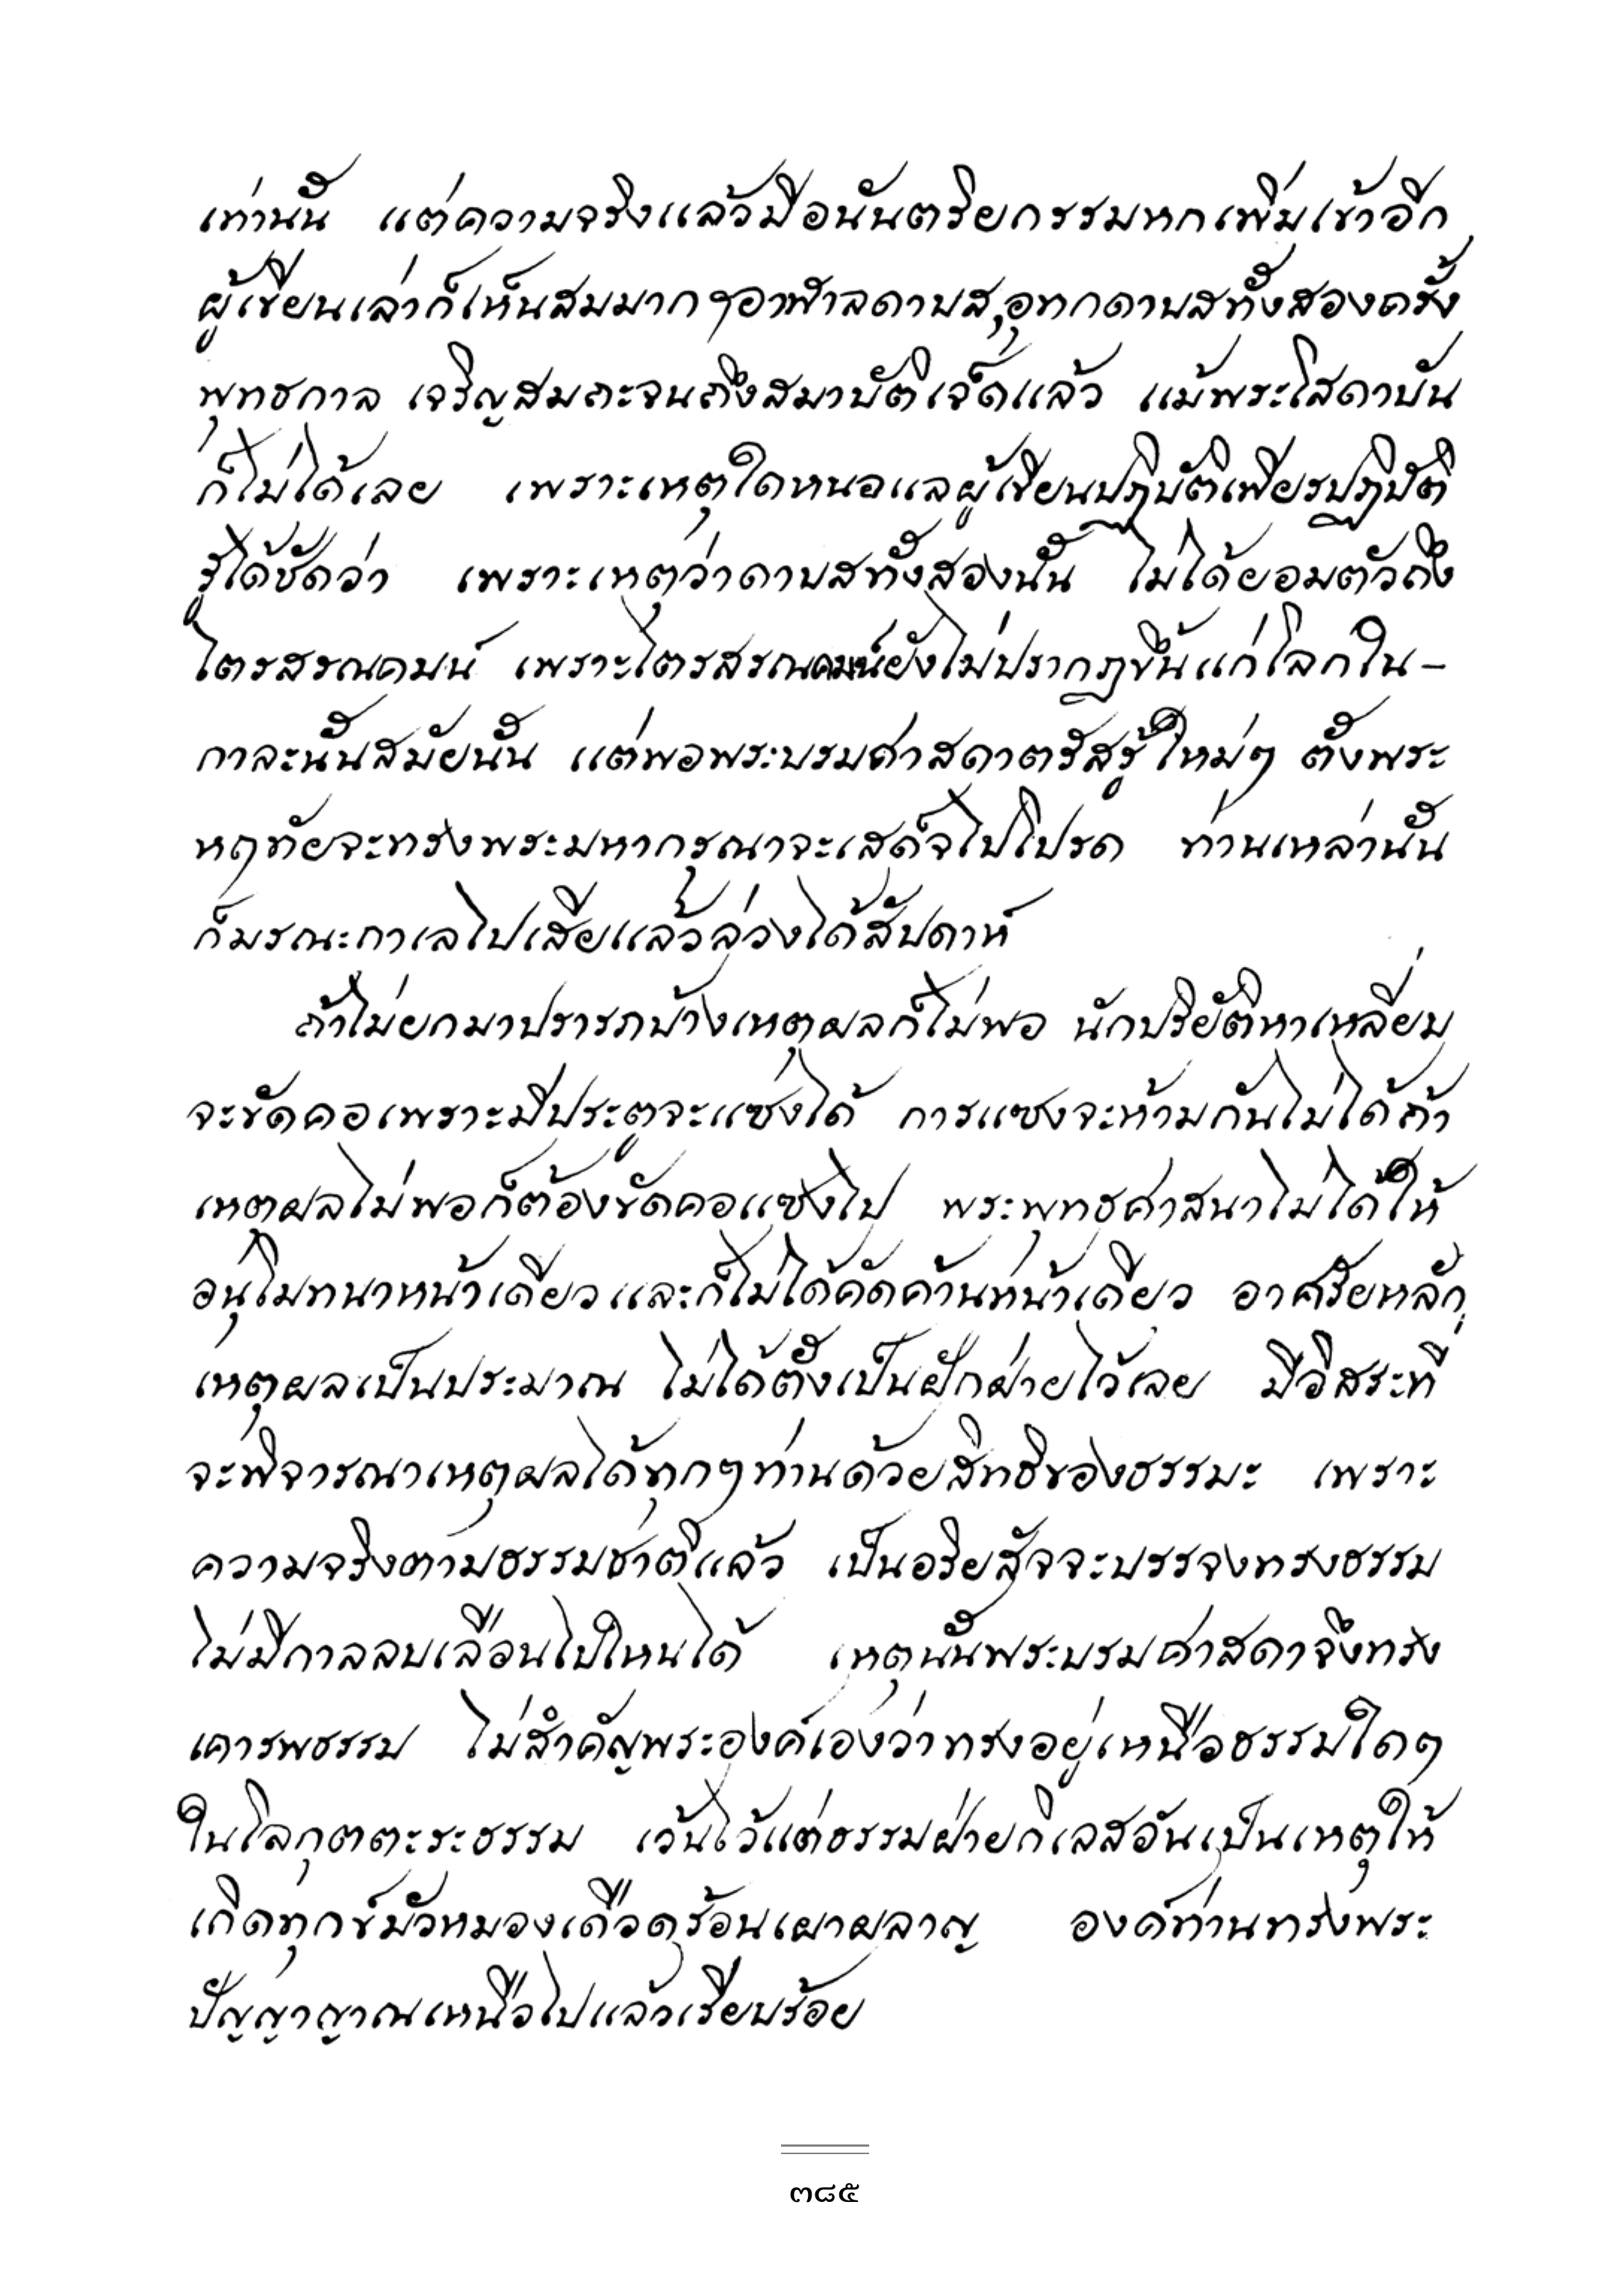 เท่านั้น แต่ความจริงแล้วมีอนันตริยกรรมหกเพิ่มเข้าอีก
ผู้เขียนเล่าก็เห็นสมมาก ๆ อาฬาลดาบส,อุทกดาบสทั้งสองครั้ง
พุทธกาล เจริญสมถะจนถึงสมาบัติเจ็ดแล้ว แม้พระโสดาบัน
ก็ไม่ได้เลย เพราะเหตุใดหนอแลผู้เขียนปฏิบัติเพียรปฏิบัติ
รู้ได้ชัดว่า เพราะเหตุว่าดาบสทั้งสองนั้น ไม่ได้ยอมตัวถึง
ไตรสรณคมน์ เพราะไตรสรณคมน์ยังไม่ปรากฏขึ้นแก่โลกใน-
กาละนั้นสมัยนั้น แต่พอพระบรมศาสดาตรัสรู้ใหม่ๆ ตั้งพระ
หฤทัยจะทรงพระมหากรุณาจะเสด็จไปโปรด ท่านเหล่านั้น
ก็มรณะกาเลไปเสียแล้วล่วงได้สัปดาห์
ถ้าไม่ยกมาปรารภบ้างเหตุผลก็ไม่พอ นักปริยัติหาเหลี่ยม
จะขัดคอเพราะมีประตูจะแซงได้ การแซงจะห้ามกันไม่ได้ถ้า
เหตุผลไม่พอก็ต้องขัดคอแซงไป พระพุทธศาสนาไม่ได้ให้
อนุโมทนาหน้าเดียวและก็ไม่ได้คัดค้านหน้าเดียว อาศรัยหลัก
เหตุผลเป็นประมาณ ไม่ได้ตั้งเป็นฝักฝ่ายไว้เลย มีอิสระที่
จะพิจารณาเหตุผลได้ทุกๆท่านด้วยสิทธิของธรรมะ เพราะ
ความจริงตามธรรมชาติแล้ว เป็นอริยสัจจะบรรจงทรงธรรม
ไม่มีกาลลบเลือนไปไหนได้ เหตุนั้นพระบรมศาสดาจึงทรง
เคารพธรรม ไม่สำคัญพระองค์เองว่าทรงอยู่เหนือธรรมใดๆ
ในโลกุตตะระธรรม เว้นไว้แต่ธรรมฝ่ายกิเลสอันเป็นเหตุให้
เกิดทุกข์มัวหมองเดือดร้อนเผาผลาญ องค์ท่านทรงพระ
ปัญญาญาณเหนือไปแล้วเรียบร้อย
๓๘๕